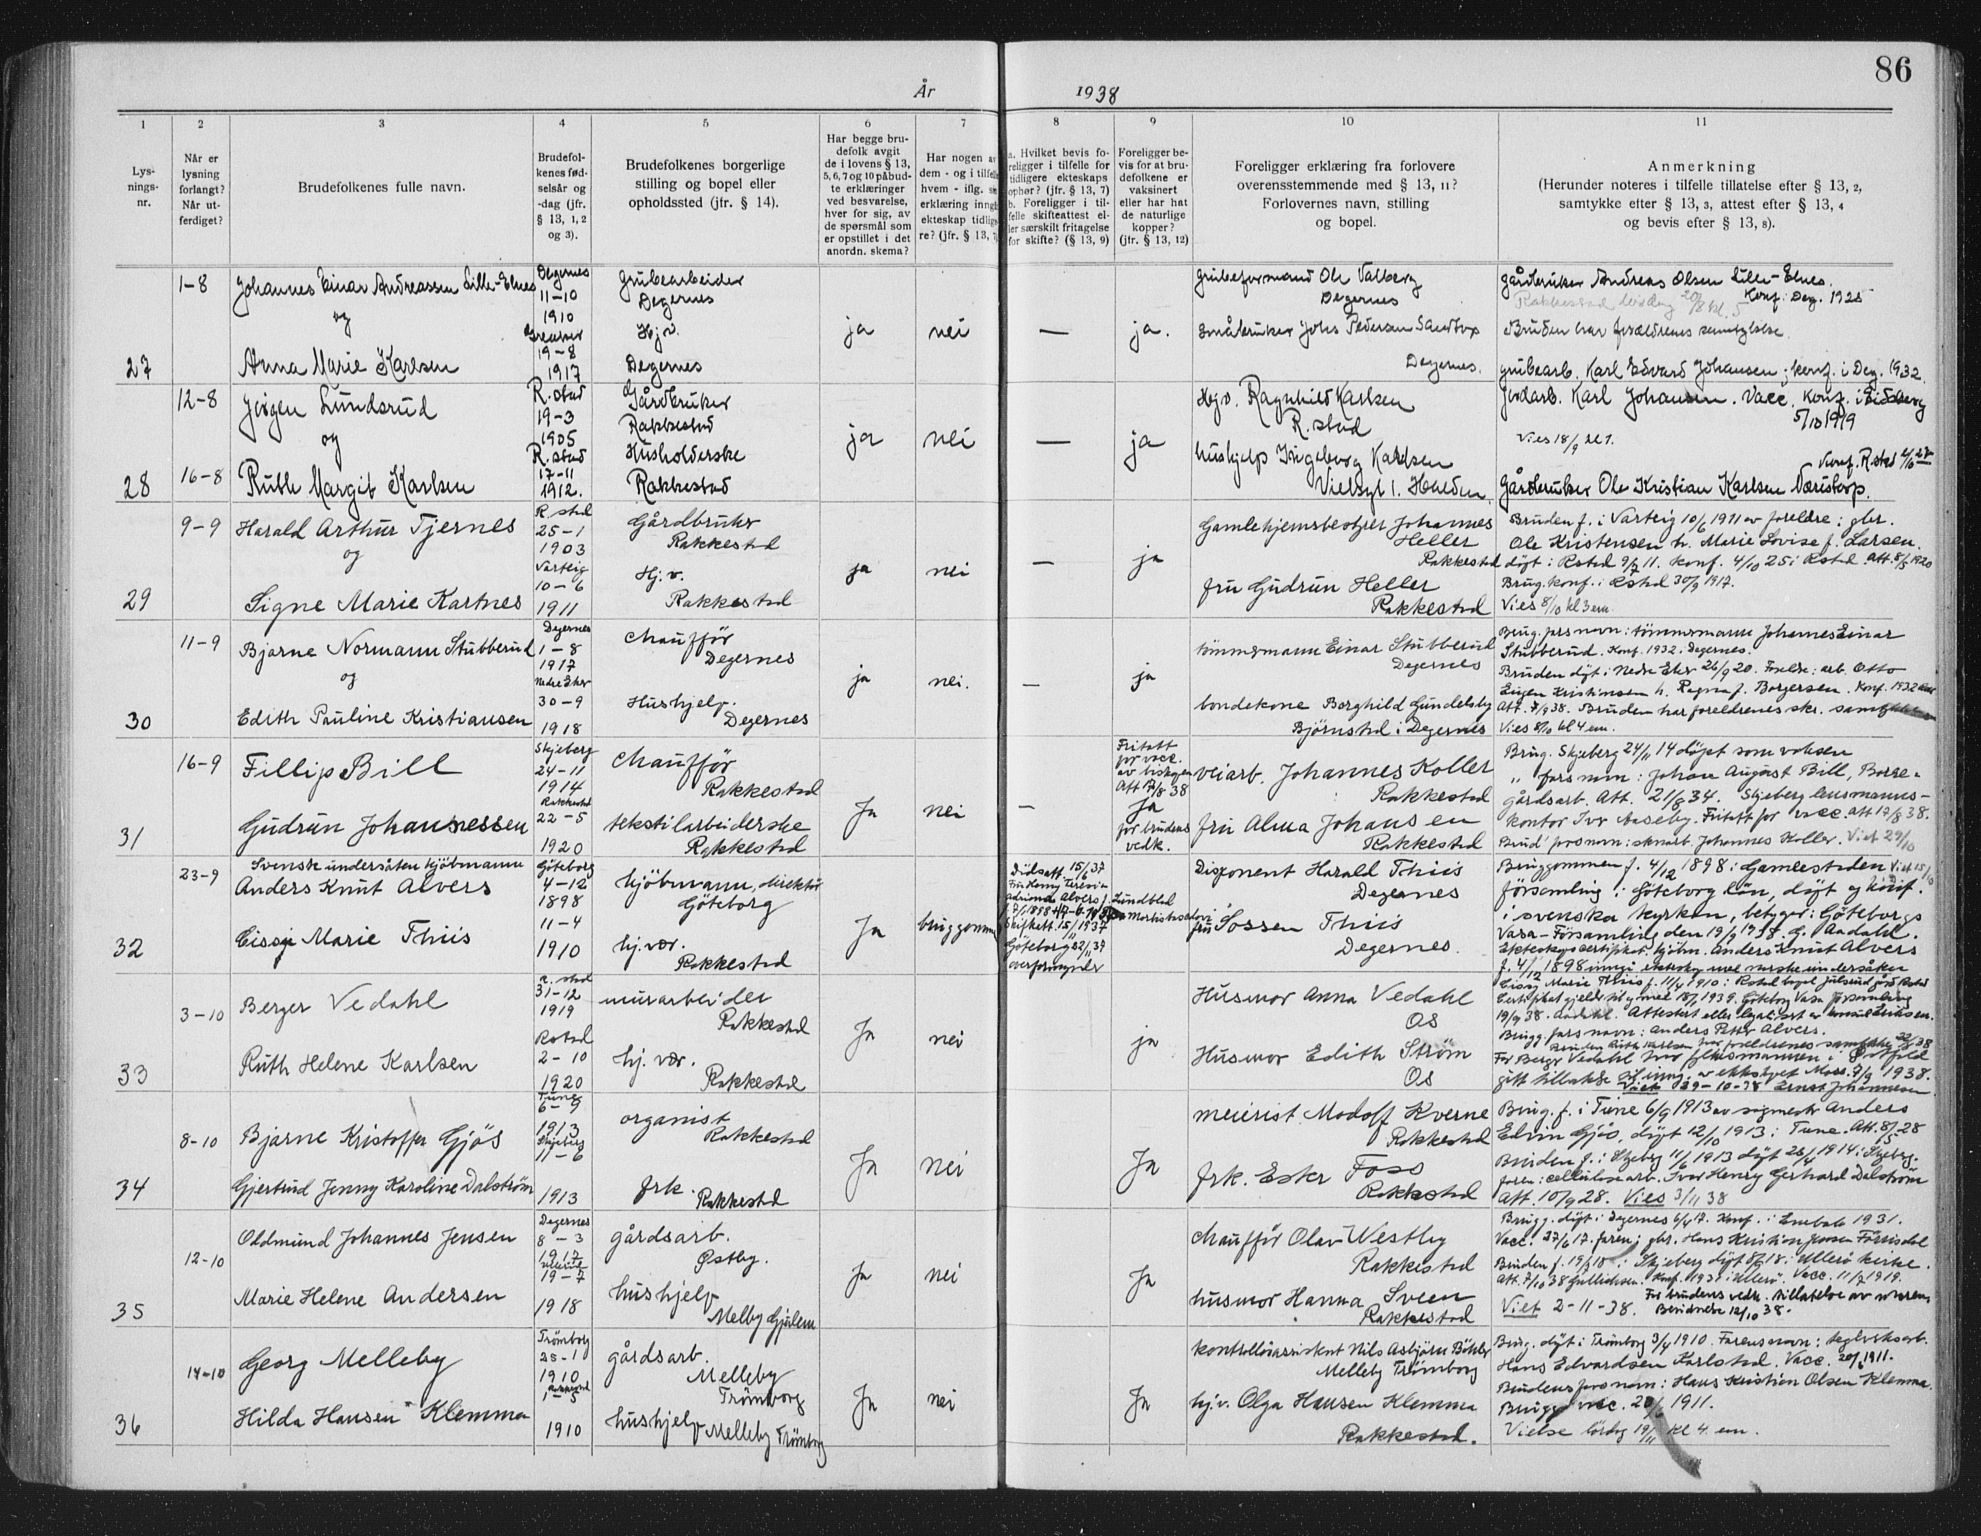 86
År 1938
1
Lys-
nings-
nr.
2
Når er
lysning
forlangt?
Når ut-
ferdiget?
3
Brudefolkenes fulle navn.
4
Brudefol-
kenes fød-
selsår og
-dag (jfr.
§ 13, 1, 2
og 3).
5
Brudefolkenes borgerlige
stilling og bopel eller
opholdssted (jfr. § 14).
6
Har begge bru-
defolk avgit
de i lovens § 13,
5, 6, 7 og 10 påbud-
te erklæringer
ved besvarelse,
hver for sig, av
de spørsmål som
er opstillet i det
anordn. skema?
7
Har nogen av
dem - og i tilfelle
hvem - iflg. sin
erklæring inngå
ekteskap tidlige-
re? (jfr. § 13, 7)
8
a. Hvilket bevis fo-
religger i tilfelle for
tidligere ekteskaps
ophør? (jfr. § 13, 7)
b. Foreligger i til-
felle skifteattest el-
ler særskilt fritagelse
for skifte? (§ 13, 9)
9
Foreligger be-
vis for at bru-
defolkene er
vaksinert
eller har hat
de naturlige
kopper?
(jfr. § 13, 12)
10
Foreligger erklæring fra forlovere
overensstemmende med § 13, 11?
Forlovernes navn, stilling
og bopel.
11
Anmerkning
(Herunder noteres i tilfelle tillatelse efter § 13, 2,
samtykke efter § 13, 3, attest efter § 13, 4
og bevis efter § 13, 8).
27
1-8
Johannes Einar Andreassen Lille-Elnes
og
Anna Marie Karlsen
Degernes
11-10
1910
19-8
1917
Grubearbeider
Degernes
Hj.v.
Degernes
ja
nei
—
ja.
Grubeformand Ole Valberg
Degernes
Småbruker Johs Pedersen
Degernes.
Gårdbruker Andreas Olsen Lille-Elnes.
Konf: Deg. 1925
Bruden har forældrenes samtykke
grubearb. Karl Edvard Johansen; konf. i Deg. 1932.
28
12-8
16-8
Jørgen Lundsrud
og
Ruth Margit Karlsen
R.stad
19-3
1905
R.stad
17-11
1912.
Gårdbruker
Rakkestad
Husholderske
Rakkestad
ja
nei
—
ja
Hgv. Ragnhild Karlsen
R.stad
hushjelp Ingeborg Karlsen
Jordarb. Karl Johansen. Vacc. Konf. i Eidsberg
5/10 1919
Vies 18/9 kl 1.
Gårdbruker Ole Kristian Karlsen
29
9-9
Harald Arthur Tjernes
og
Signe Marie Kartnes
R. stad
25-1
1903
Varteig
10-6
1911
Gårdbruker
Rakkestad
Hj.v.
Rakkestad
ja
nei
—
ja
Gamlehjemsbestyrer Johannes
Heller
Rakkestad
fru Gudrun Heller
Rakkestad
Bruden f. i Varteig 10/6 1911 av foreldre: gbr.
Ole Kristensen h. Marie Lovise f. Larsen.
døpt i Rstad 9/7 11. Konf. 4/10 25 i Rstad. Att. 8/5 1920
Brug. konf. i Rstad 30/9 1917.
Vies 8/10 kl 3 em.
30
11-9
Bjarne Normann Stubberud
og
Edith Pauline Kristiansen
Degernes
1-8
1917
Nedre Eker
30-9
1918
Chauffør
Degernes
Hushjelp.
Degernes
ja
nei.
—
ja
tømmermann Einar Stubberud
Degernes
bondekone Borghild Gundelsby
Bjørnstad i Degernes
Brug. fars navn: tømmermann Johannes Einar
Stubberud. Konf. 1932. Degernes.
Bruden døpt i Nedre Eker 26/9 20. Forelde: arb. Otto
Eugen Kristiansen h. Ragna f. Borgersen. Konf. 1932
Att. 7/9 38. Bruden har foreldrenes skr. samtykke
Vies 8/10 kl 4 em.
31
16-9
Fillip Bill
Gudrun Johannessen
Skjeberg
24-11
1914
Rakkestad
22-5
1920
Chauffør
Rakkestad
tekstilarbeiderske
Rakkestad
Ja
nei
—
Fritatt
for vacc.
av biskopen
Att 17/8 38
Ja
for brudens
vedk.
veiarb. Johannes Koller
Rakkestad
fru Alma Johansen
Rakkestad
Brug. Skjeberg 24/11 14 døpt som voksen
„ fars navn: Johan August Bill, Borge-
gårdsarb. Att. 21/8 34. Skjeberg lensmanns-
kontor Ivar Aaseby. Fritatt for vacc. att 17/8 38.
Brud' fars navn: Johannes Koller. Viet 29/10
32
23-9
Svensk undersåtten kjöbmann
Anders Knut Alvers
Cissy Marie Thiis
Göteborg
4-12
1898
11-4
1910
kjöbmann, direktør
Göteborg
hj. vær.
Rakkestad
Ja
bruggommen
Dødsatt. 15/6 37
Skifteatt. 15/11 1937
Göteborg 22/11 37
overformynder
Disponent Harald Thiis
Degernes
fru Sossen Thiis
Degernes.
Bruggommen f. 4/12 1898 i Gamlestaden
församling i Göteborg län, døpt og konf.
i svenska kyrkan, betyger: Göteborgs
Vasa-Församling den 19/9 1938. G. Aadahl.
Ekteskapscertifikat: kjöbm. Anders Knut Alvers
f. 4/12 1898 inngå ekteskap med norske undersåtten
Cissy Marie Thiis f. 11/4 1910 i Rstad
19/9 38. Aadahl. Attestert eller legalisert av konsul Eriksen.
Brugg. fars navn: Anders Petter Alvers.
33
3-10
Berger Vedahl
Ruth Helene Karlsen
R. stad
31-12
1919
Rstad
2-10
1920
murarbeider
Rakkestad
hj. vær.
Rakkestad
Ja
nei
ja
Husmor Anna Vedahl
Os
Husmor Edith Strøm
Os
Bruden Ruth Karlsen har foreldrenes samtykke
For Berger Vedahl har fylkesmannen i Østfold
gitt tillatelse til inng. av ekteskapet Moss 7/9 1938.
Viet 29-10-38 Ernst Johannesen
34
8-10
Bjarne Kristoffer Gjøs
Gjertrud Jenny Karoline Dalstrøm
Tune
6-9
1913
Skjeberg
11-6
1913
organist
Rakkestad
frk.
Rakkestad
Ja
nei
Ja
meierist Modolf Kverne
Rakkestad
frk. Ester Foss
Rakkestad
Brug. f. i Tune 6/9 1913 av sagmester Anders
Edvin Gjøs, døpt 12/10 1913 i Tune. Att. 8/5 28
Bruden f. i Skjeberg 11/6 1913 døpt 26/4 1914 i Skjeberg.
faren: cellulosearb. Ivar Henry Gerhard Dalstrøm
Att. 10/9 28. Vies 3/11 38
35
12-10
Oldmund Johannes Jensen
Marie Helene Andersen
Degernes
8-3
1917
Ullerøi
19-7
1918
gårdsarb.
Østby.
hushjelp
Melby Gjulem
Ja
nei
Ja
Chauffør Olav Westby
Rakkestad
husmor Hanna Sveen
Rakkestad
Brugg. døpt i Degernes 6/4 17. Konf. i Enebak 1931.
Vacc. 27/6 17. faren: gbr. Hans Kristian Jensen
Bruden f. 19/7 18 i Skjeberg døpt 8/9 18 i Ullerø kirke.
Att. 7/10 38 Gullichsen. Konf. 1931 i Ullerø. Vacc. 11/7 1919.
For brudens vedk. tillatelse av
Viet 2-11-38. 12/10 38.
36
14-10
Georg Melleby
Hilda Hansen Klemma
Trømborg
25-1
1910
Rakkestad
1-5
1910
gårdsarb.
Melleby
Trømborg
hushjelp
Melleby Trømborg
Ja
nei
Ja
kontrollassistent Nils Asbjørn Bøhler
Melleby Trømborg
hj.v. Olga Hansen Klemma
Rakkestad.
Brug. døpt i Trømborg 3/4 1910. Farens navn: teglverksarb.
Hans Edvardsen Karlstad. Vacc. 20/6 1911.
Brudens fars navn: Hans Kristian Olsen Klemma.
Brugg. vacc. 20/6 1911.
Vielse lördag 19/11 kl 4 em.